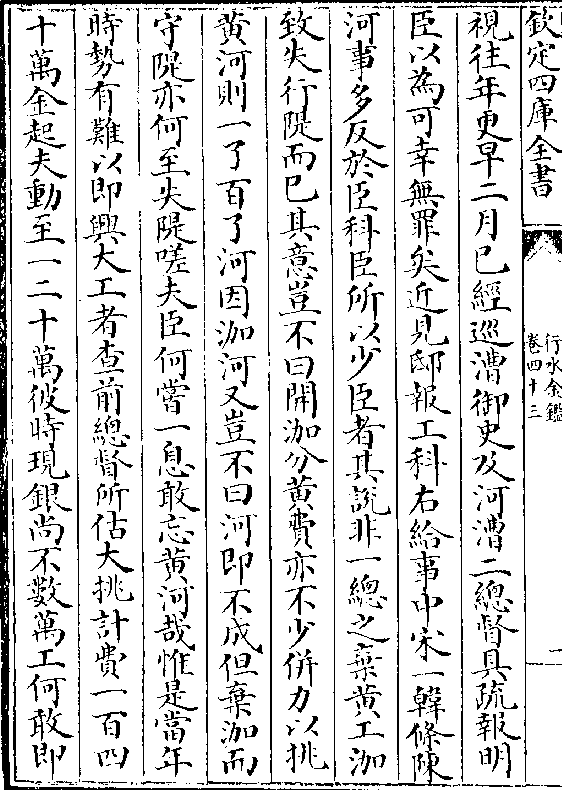 欽定四庫全書
行水金鑑
卷四十三
一
視往年更早二月已經巡漕御史及河漕二總督具疏報明
臣以為可幸無罪矣近見邸報工科右給事中宋一韓條陳
河事多反於臣科臣所以少臣者其說非一總之棄黄工泇
致失行隄而已其意豈不曰開泇分黄費亦不少併力以挑
黄河則一了百了河因泇河又豈不曰河即不成但棄泇而
守隄亦何至失隄嗟夫臣何嘗一息敢忘黄河哉惟是當年
時勢有難以即興大工者查前總督所估大挑計費一百四
十萬金起夫動至一二十萬彼時現銀尚不數萬工何敢即